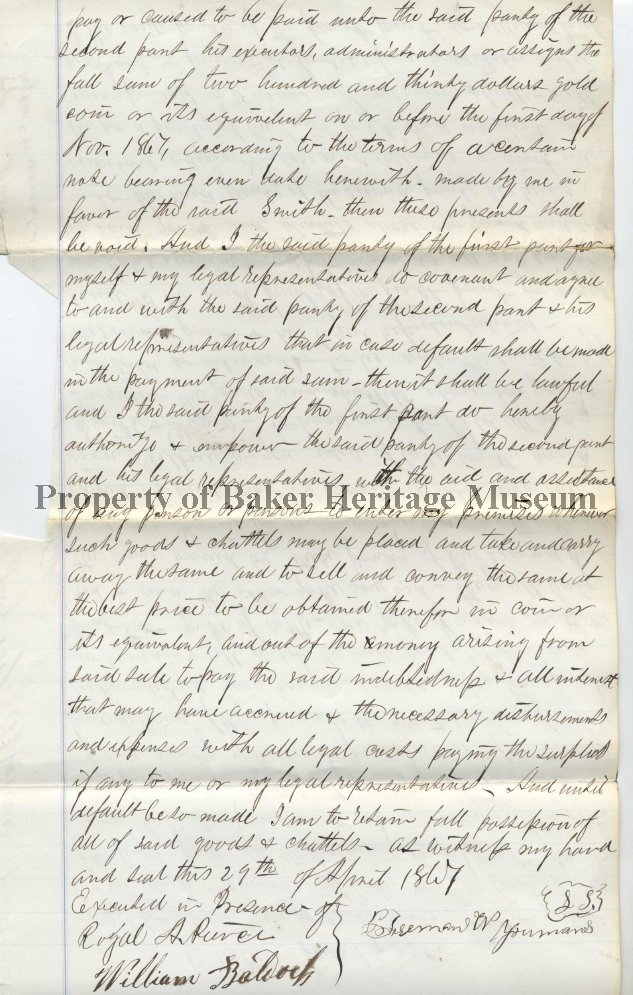 pay or caused to be paid unto the said party of the
second part his executors, administrators or assigns the
full sum of two hundred and thirty dollars gold
coin or its equivalent on or before the first day of
Nov. 1867, according to the terms of a certain
note bearing even date herewith - made by me in
favor of the said Smith - then these presents shall
be void. And I the said party of the first part for
myself & my legal representatives do covenant and agree
to and with the said party of the second part & his
legal representatives that in case default shall be made
in the payment of said sum - then it shall be lawful
and I the said party of the first part do hereby
authorize & empower the said party of the second part
and his legal representatives with the aid and assistance
Property of Baker Heritage Museum
of any person or persons to enter my premises wherever
such goods & chattels may be placed and take and carry
away the same and to sell and convey the same at
the best price to be obtained therefor in coin or
its equivalent, and out of the money arising from
said sale to pay the said indebtedness & all interest
that may have accrued & the necessary disbursements
and expenses with all legal costs paying the surplus
if any to me or my legal representatives - And until
default be so made I am to retain full possession of
all of said goods & chattels - as witness my hand
and seal this 29th of April 1867
Executed in Presence of
Royal A Pierce
William Baldock
Sherman W Youmans
L. S.